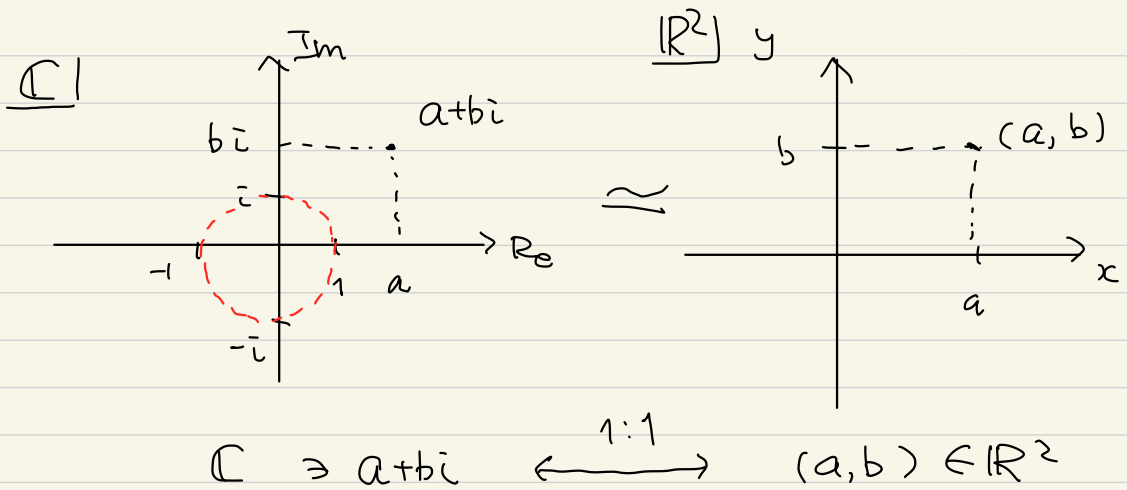 ℂ
Im
a+bi
bi
i
-1
1
a
Re
-i
≅
ℝ²
y
b
(a, b)
a
x
1:1
ℂ ∋ a+bi ⟷ (a, b) ∈ ℝ²